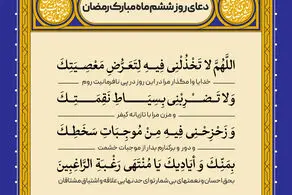 دعای روز ششم ماه مبارک رمضان
اللَّهُمَّ لَا تَخْذُلْنِی فِیهِ لِتَعَرُّضِ مَعْصِیَتِكَ
خدایا وا مگذار مرا در این روز در پی نافرمانیت روم
وَلَا تَضْرِبْنِی بِسِیَاطِ نَقِمَتِكَ
و مزن مرا با تازیانه کیفر
وَ زَحْزِحْنِی فِیهِ مِنْ مُوجِبَاتِ سَخَطِكَ
و دور و برکنارم بدار از موجبات خشمت
بِمَنِّكَ وَ أَیَادِیكَ یَا مُنْتَهَی رَغْبَةِ الرَّاغِبِینَ
بحق احسان و نعمتهای بی شمار تو ای حد نهایی علاقه و اشتیاق مشتاقان